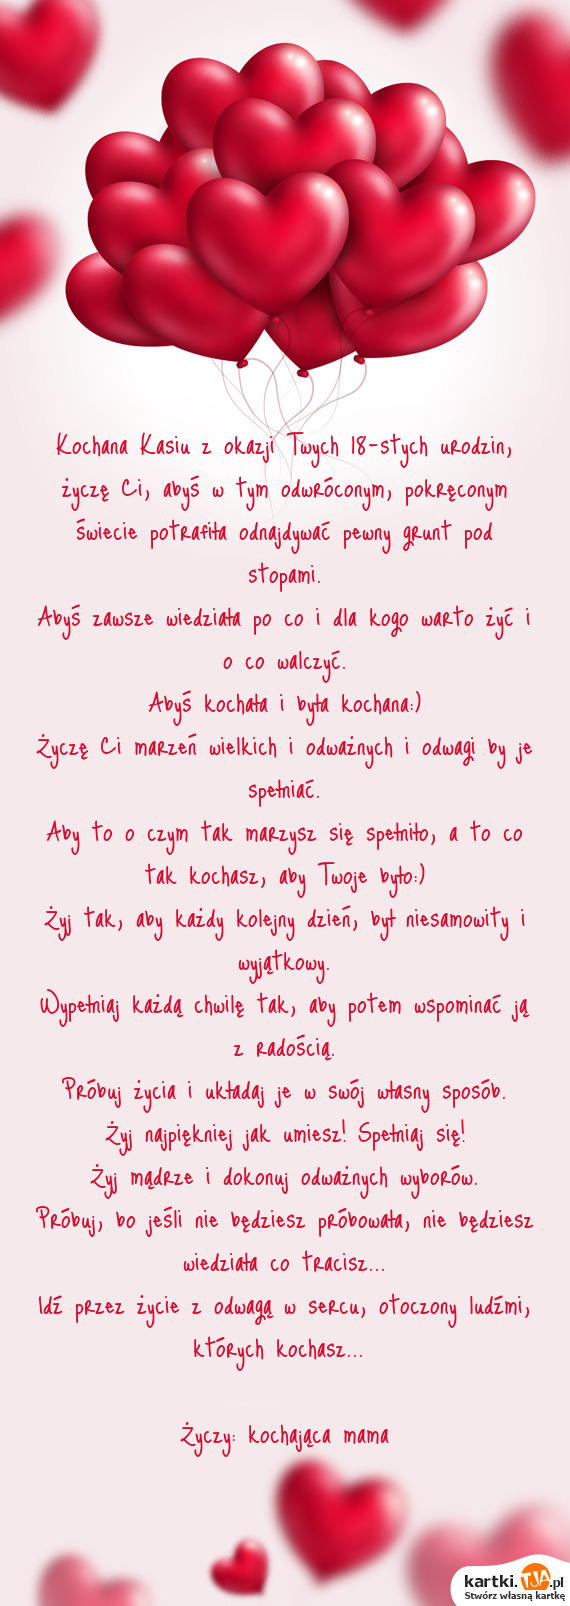 Kochana Kasiu z okazji Twych 18-stych urodzin,
życzę Ci, abyś w tym odwróconym, pokręconym
świecie potrafiła odnajdywać pewny grunt pod
stopami.
Abyś zawsze wiedziała po co i dla kogo warto żyć i
o co walczyć.
Abyś kochała i była kochana:)
Życzę Ci marzeń wielkich i odważnych i odwagi by je
spełniać.
Aby to o czym tak marzysz się spełniło, a to co
tak kochasz, aby Twoje było:)
Żyj tak, aby każdy kolejny dzień, był niesamowity i
wyjątkowy.
Wypełniaj każdą chwilę tak, aby potem wspominać ją
z radością.
Próbuj życia i układaj je w swój własny sposób.
Żyj najpiękniej jak umiesz! Spełniaj się!
Żyj mądrze i dokonuj odważnych wyborów.
Próbuj, bo jeśli nie będziesz próbowała, nie będziesz
wiedziała co tracisz...
Idź przez życie z odwagą w sercu, otoczony ludźmi,
których kochasz...
Życzy: kochająca mama
kartki.TJA.pl
Stwórz własną kartkę